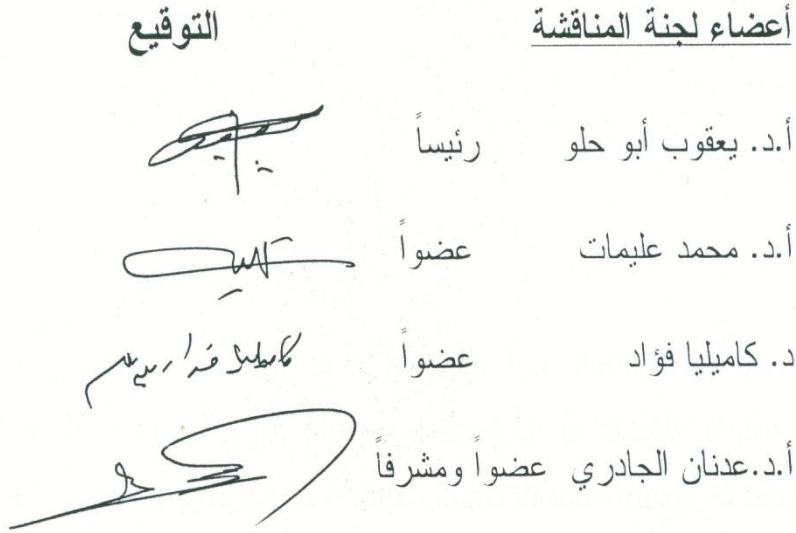 أعضاء لجنة المناقشة التوقيع
أ.د. يعقوب أبو حلو رئيساً
أ.د. محمد عليمات عضواً
د. كاميليا فؤاد عضواً
أ.د.عدنان الجادري عضواً ومشرفاً